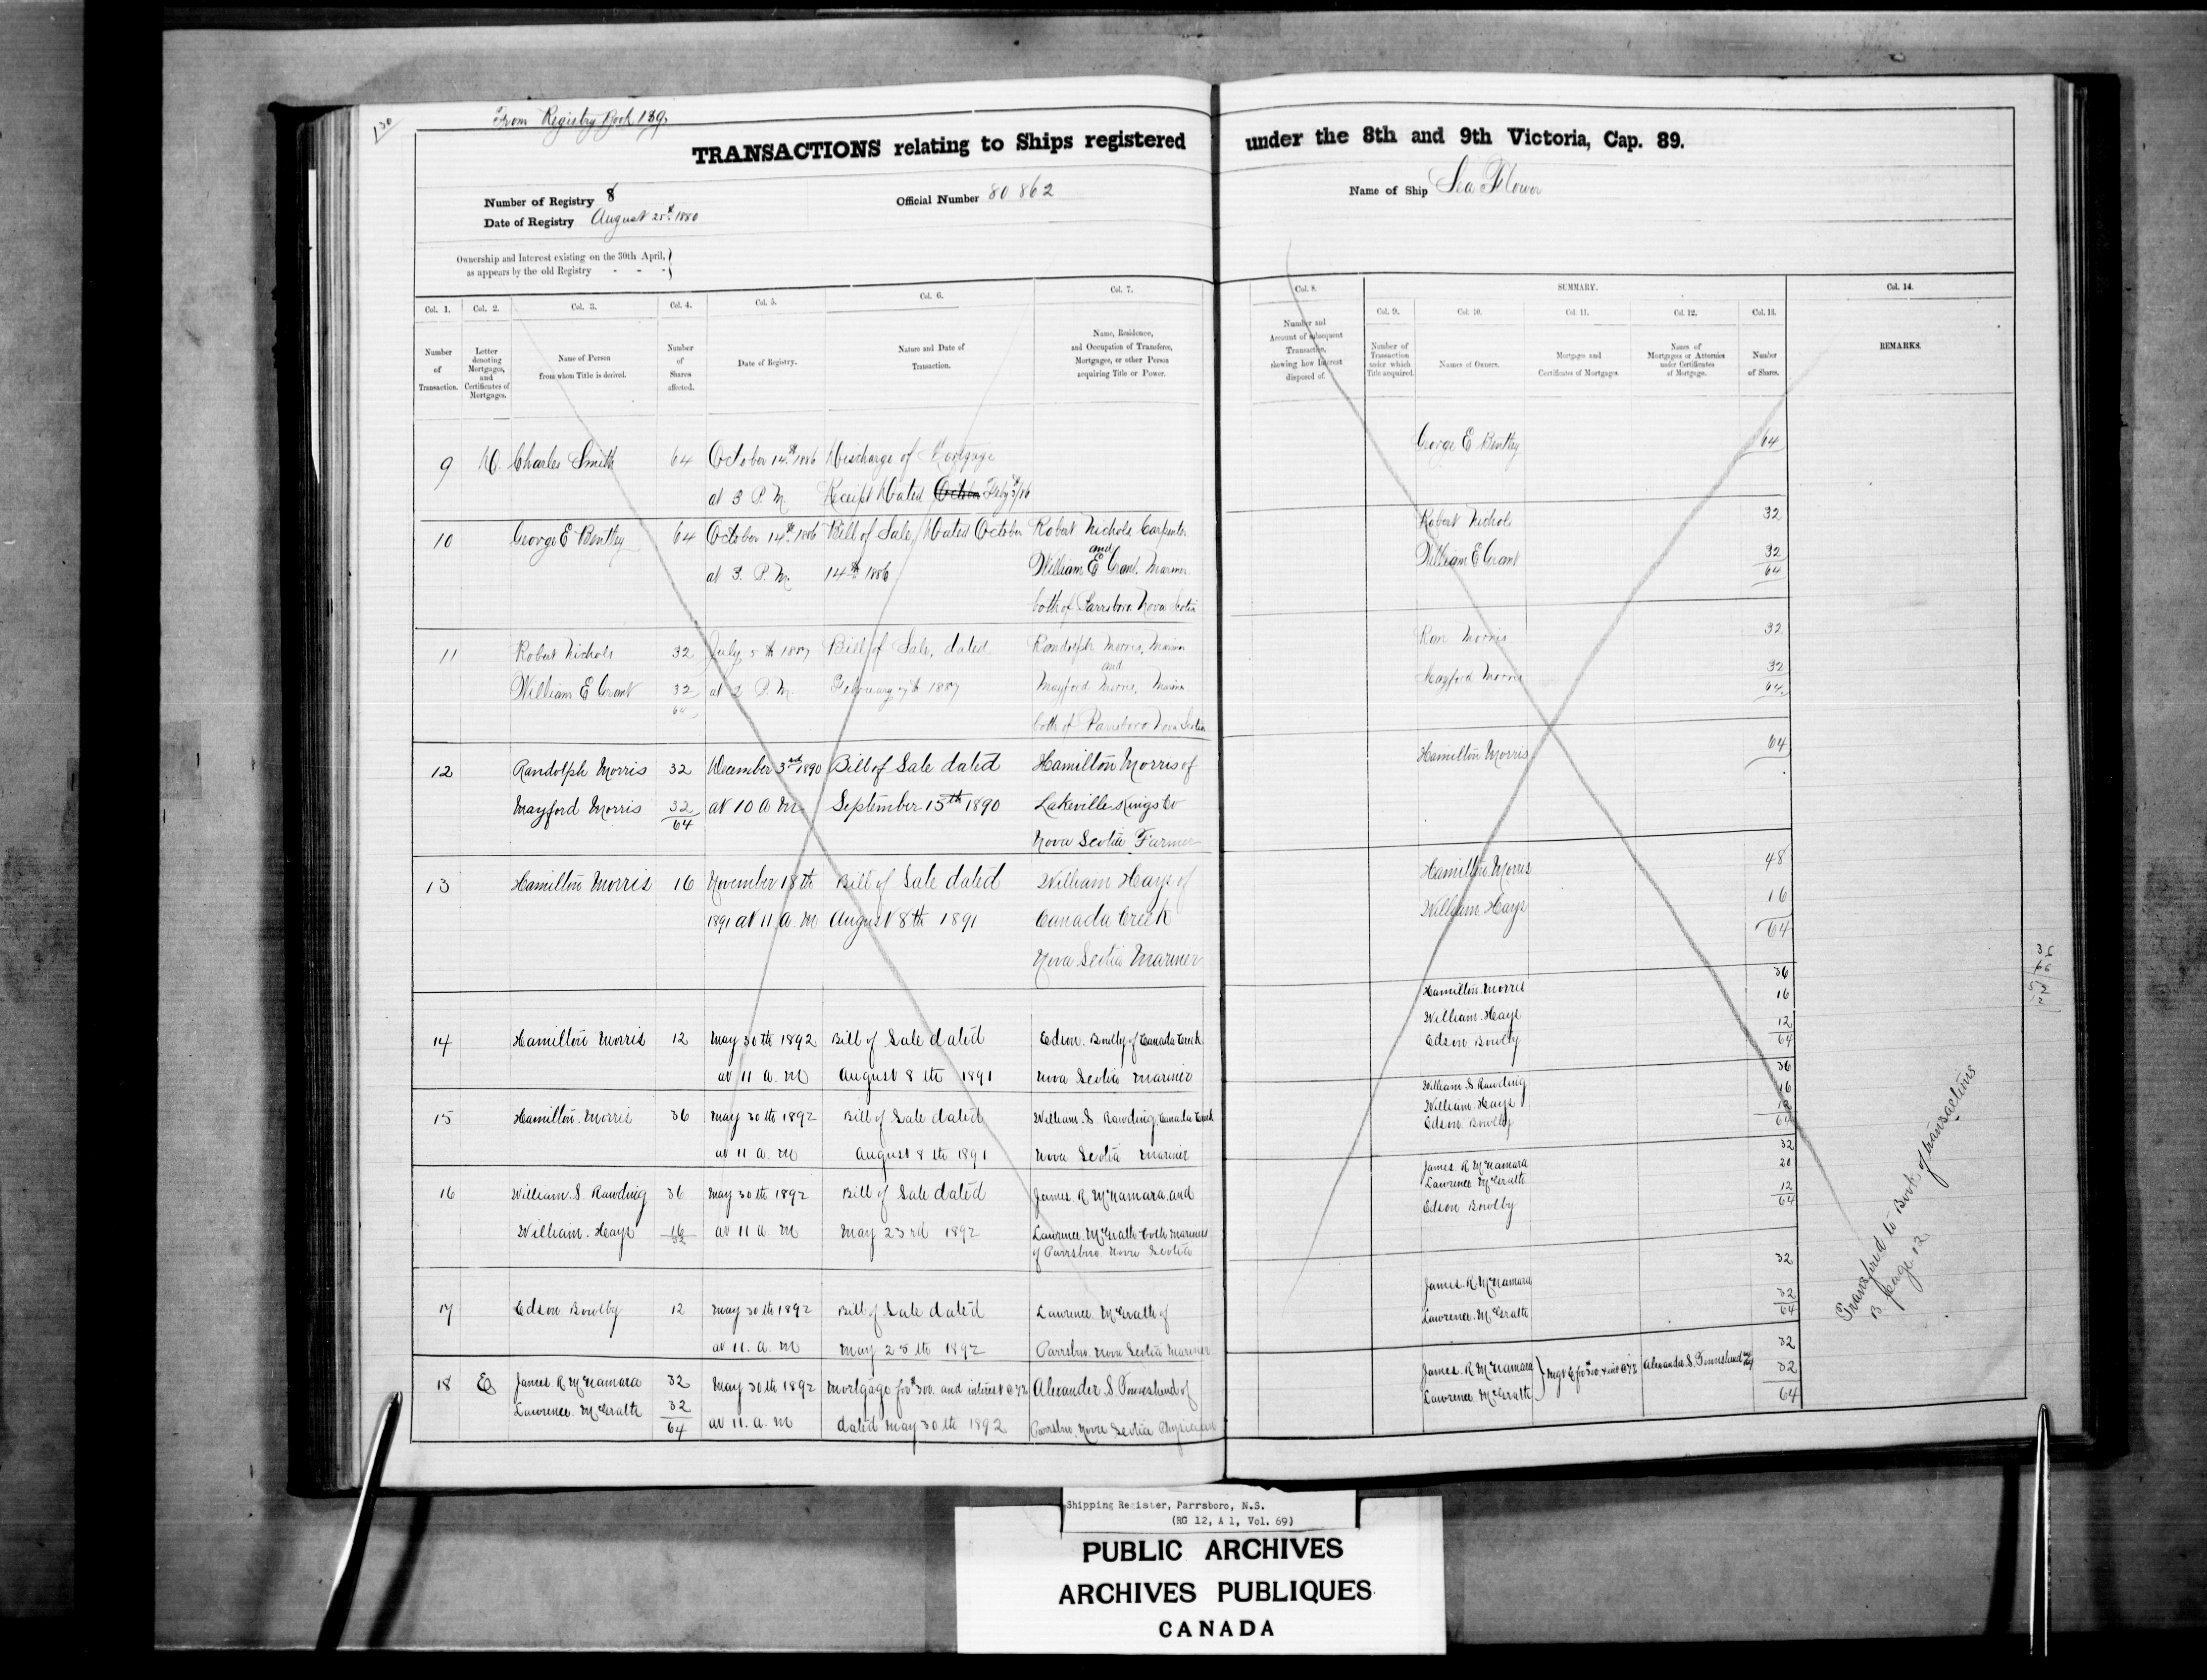 130
From Registry Book 139
TRANSACTIONS relating to Ships registered under the 8th and 9th Victoria, Cap. 89.
Number of Registry 8
Official Number 80862
Name of Ship Sea Flower
Date of Registry August 25th 1880
Ownership and Interest existing on the 30th April, }
as appears by the old Registry - - - }
Col. 1. Col. 2. Col. 3. Col. 4. Col. 5. Col. 6. Col. 7. Col. 8. SUMMARY. Col. 14.
Col. 9. Col. 10. Col. 11. Col. 12. Col. 13.
Number of Transaction.
Letter denoting Mortgages, and Certificates of Mortgages.
Name of Person from whom Title is derived.
Number of Shares affected.
Date of Registry.
Nature and Date of Transaction.
Name, Residence, and Occupation of Transferee, Mortgagee, or other Person acquiring Title or Power.
Number and Account of subsequent Transaction, showing how Interest disposed of.
Number of Transaction under which Title acquired.
Names of Owners.
Mortgages and Certificates of Mortgages.
Names of Mortgagees or Attornies under Certificates of Mortgage.
Number of Shares.
REMARKS.
9 D. Charles Smith 64 October 14th 1886 Discharge of Mortgage George E Bentley 64
at 3 P.M. Receipt Dated
10 George E Bentley 64 October 14th 1886 Bill of Sale, Dated October Robert Nichols Carpenter Robert Nichols 32
and
at 3. P.M. 14th 1886 William E Grant. Mariner William E Grant 32
64
both of Parrsboro Nova Scotia
11 Robert Nichols 32 July 5th 1887 Bill of Sale, dated Randolph Morris, Mariner Ran Morris 32
and
William E Grant 32 at 2 P.M. February 7th 1887 Mayford Morris, Mariner Mayford Morris 32
64 64
both of Parrsboro Nova Scotia
12 Randolph Morris 32 December 3rd 1890 Bill of Sale dated Hamilton Morris of Hamilton Morris 64
Mayford Morris 32 at 10 a m September 15th 1890 Lakeville Kings Co
64 Nova Scotia Farmer
13 Hamilton Morris 16 November 18th Bill of Sale dated William Hays of Hamilton Morris 48
1891 at 11 a. m August 8th 1891 Canada Creek William Hays 16
Nova Scotia Mariner 64
14 Hamilton Morris 12 May 30th 1892 Bill of Sale dated Edson Bowlby of Canada Creek Hamilton Morris 36
at 11 a. m August 8th 1891 Nova Scotia Mariner William Hays 16
Edson Bowlby 12
64
15 Hamilton Morris 36 May 30th 1892 Bill of Sale dated William S. Rawding Canada Creek William S Rawding 36
at 11 a. m August 8th 1891 Nova Scotia Mariner William Hays 16
Edson Bowlby 12
64
16 William S. Rawding 36 May 30th 1892 Bill of Sale dated James R McNamara and James R McNamara 32
William Hays 16 at 11 a. m May 23rd 1892 Lawrence McGrath both Mariners Lawrence McGrath 20
52 of Parrsboro Nova Scotia Edson Bowlby 12
64
17 Edson Bowlby 12 May 30th 1892 Bill of Sale dated Lawrence McGrath of James R McNamara 32
at 11. a. m May 25th 1892 Parrsboro Nova Scotia Mariner Lawrence McGrath 32
64
18 E James R McNamara 32 May 30th 1892 Mortgage for $300. and interest @ 7% Alexander S. Townshend of James R McNamara 32
Lawrence McGrath 32 at 11. a. m dated May 30th 1892 Parrsboro, Nova Scotia Physician Lawrence McGrath } Mgt E for $300. & int @ 7% Alexander S. Townshend 32
64 64
Transferred to Book of transactions
B page 12
Shipping Register, Parrsboro, N.S.
(RG 12, A 1, Vol. 69)
PUBLIC ARCHIVES
ARCHIVES PUBLIQUES
CANADA